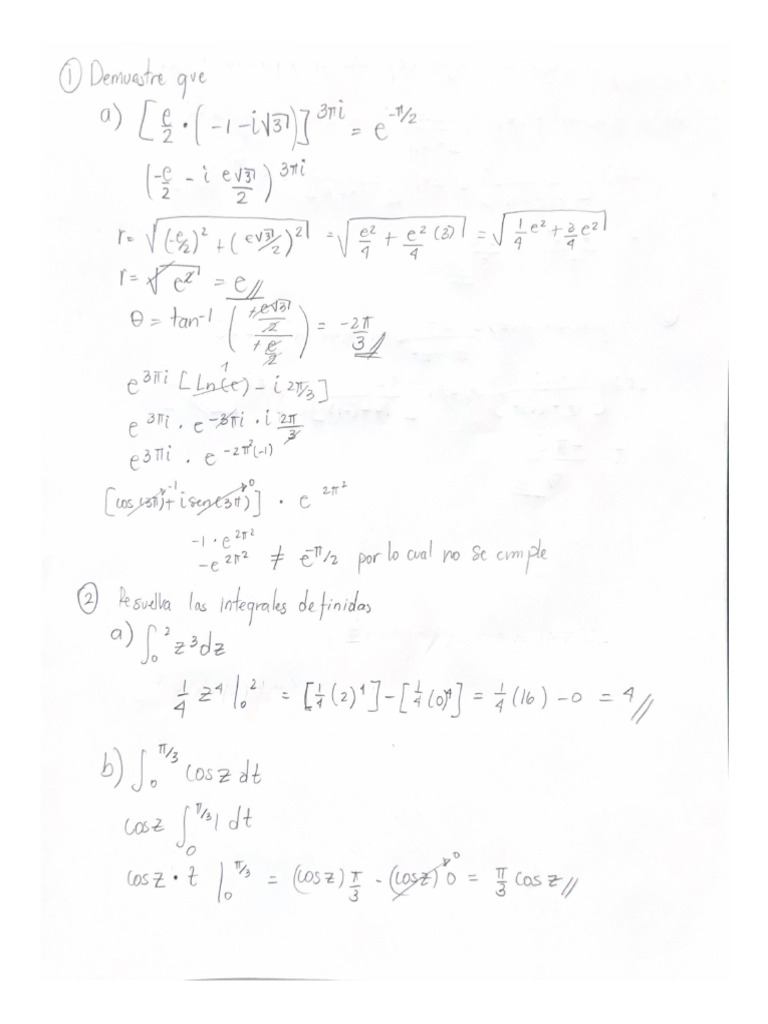 ① Demuestre que
a) [e/2 · (-1 - i√3)]^(3πi) = e^(-π/2)
(-e/2 - i e√3/2)^(3πi)
r = √((e/2)² + (e√3/2)²) = √(e²/4 + e²(3)/4) = √(1/4 e² + 3/4 e²)
r = √e² = e //
θ = tan⁻¹ ((+e√3/2)/(+e/2)) = -2π/3 //
e^(3πi [Ln(e) - i 2π/3])
e^(3πi) · e^(-3πi · i 2π/3)
e^(3πi) · e^(-2π²(-1))
[cos(3π) + i sen(3π)] · e^(2π²)
-1 · e^(2π²)
-e^(2π²) ≠ e^(-π/2) por lo cual no se cumple
② Resuelva las integrales definidas
a) ∫₀² z³dz
1/4 z⁴ |₀² = [1/4 (2)⁴] - [1/4 (0)⁴] = 1/4 (16) - 0 = 4 //
b) ∫₀^(π/3) cos z dt
cos z ∫₀^(π/3) 1 dt
cos z · t |₀^(π/3) = (cos z) π/3 - (cos z) 0 = π/3 cos z //